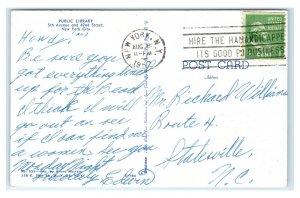 PUBLIC LIBRARY
5th Avenue and 42nd Street,
New York City
Howdy,
Be sure you
got everything lined
up for the Beach
I think I will
go out an see
if I can find me
a women by you
Monday Night
Edwin
NEW YORK, N.Y.
AUG
HIRE THE HANDICAPPED
ITS GOOD BUSINESS
POST CARD
Mr. Richard Williams
Route 4
Statesville,
N.C.